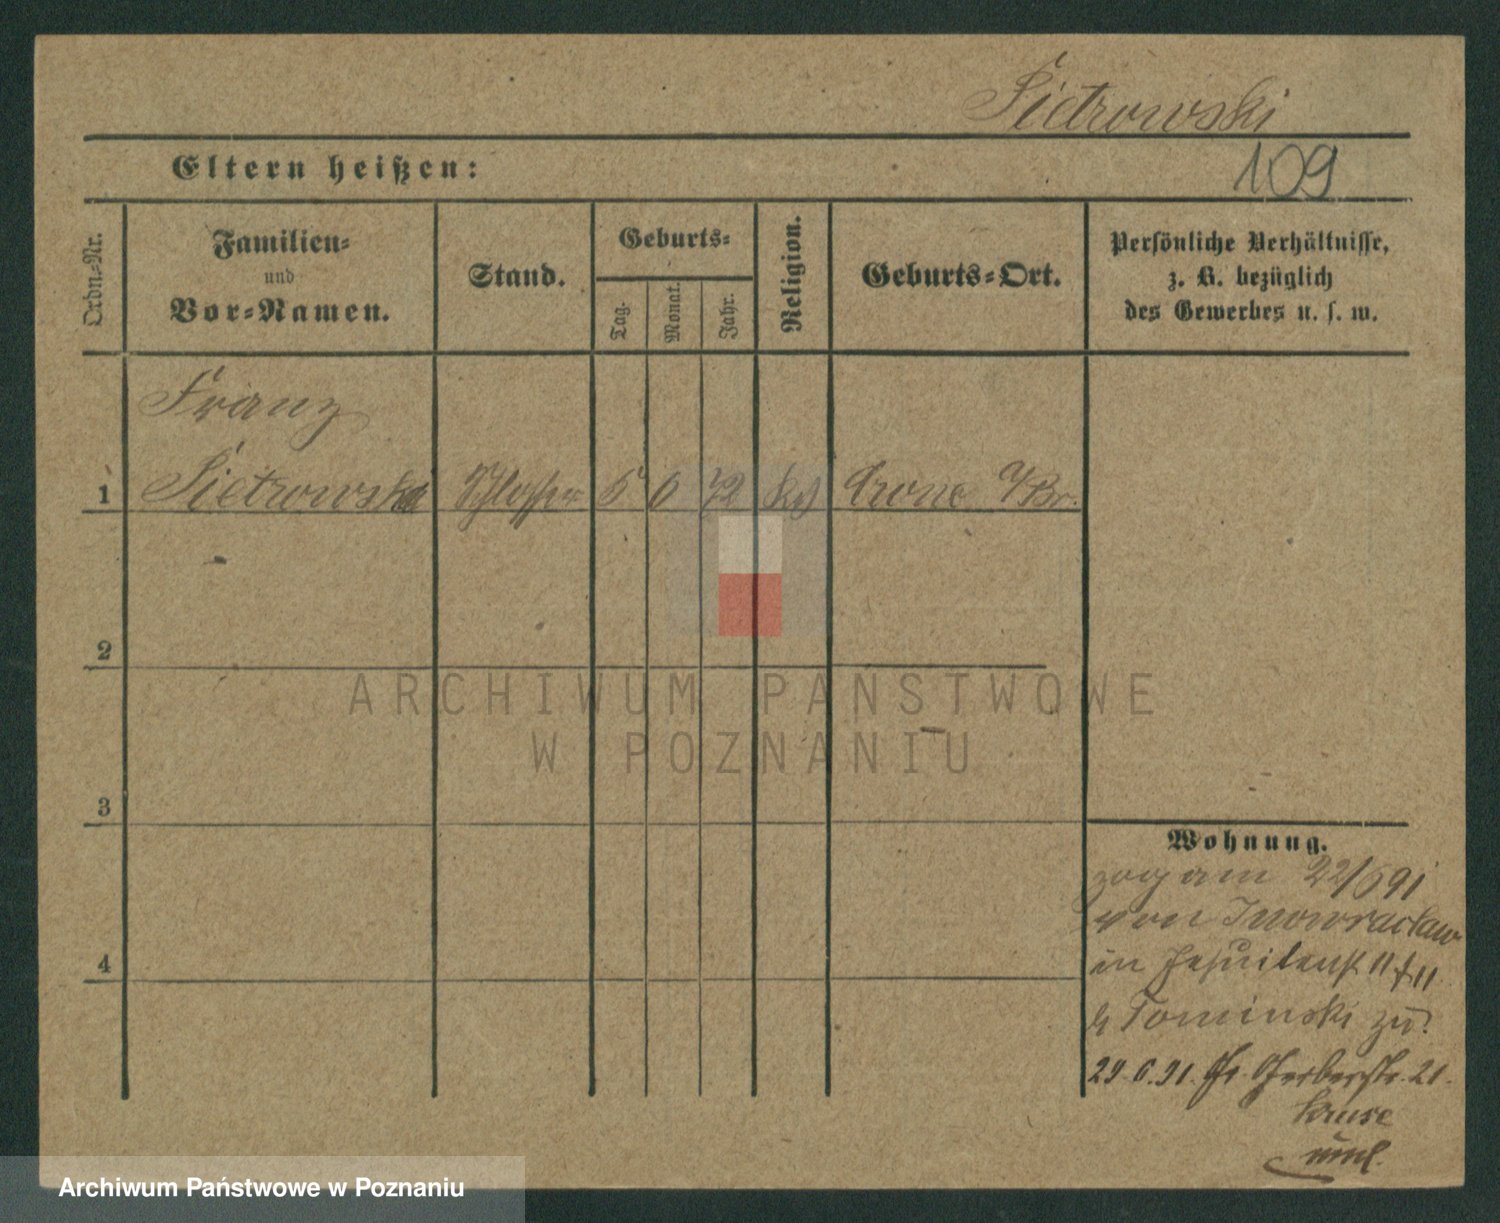 Pietrowski
Eltern heißen:
109
Ordn=Nr.
Familien=
und
Vor=Namen.
Stand.
Geburts=
Tag.
Monat.
Jahr.
Religion.
Geburts=Ort.
Persönliche Verhältnisse,
z. B. bezüglich
des Gewerbes u. s. w.
Franz
1 Pietrowski Schlosser 5 6 72 Crone a/Br.
2
3
4
ARCHIWUM PAŃSTWOWE
W POZNANIU
Wohnung.
zog am 22/6 91
von Inowraclaw
in Jesuitenst 11
Tominski zu.
29.6.91. Gr. Gerberstr. 21.
Krause
Archiwum Państwowe w Poznaniu